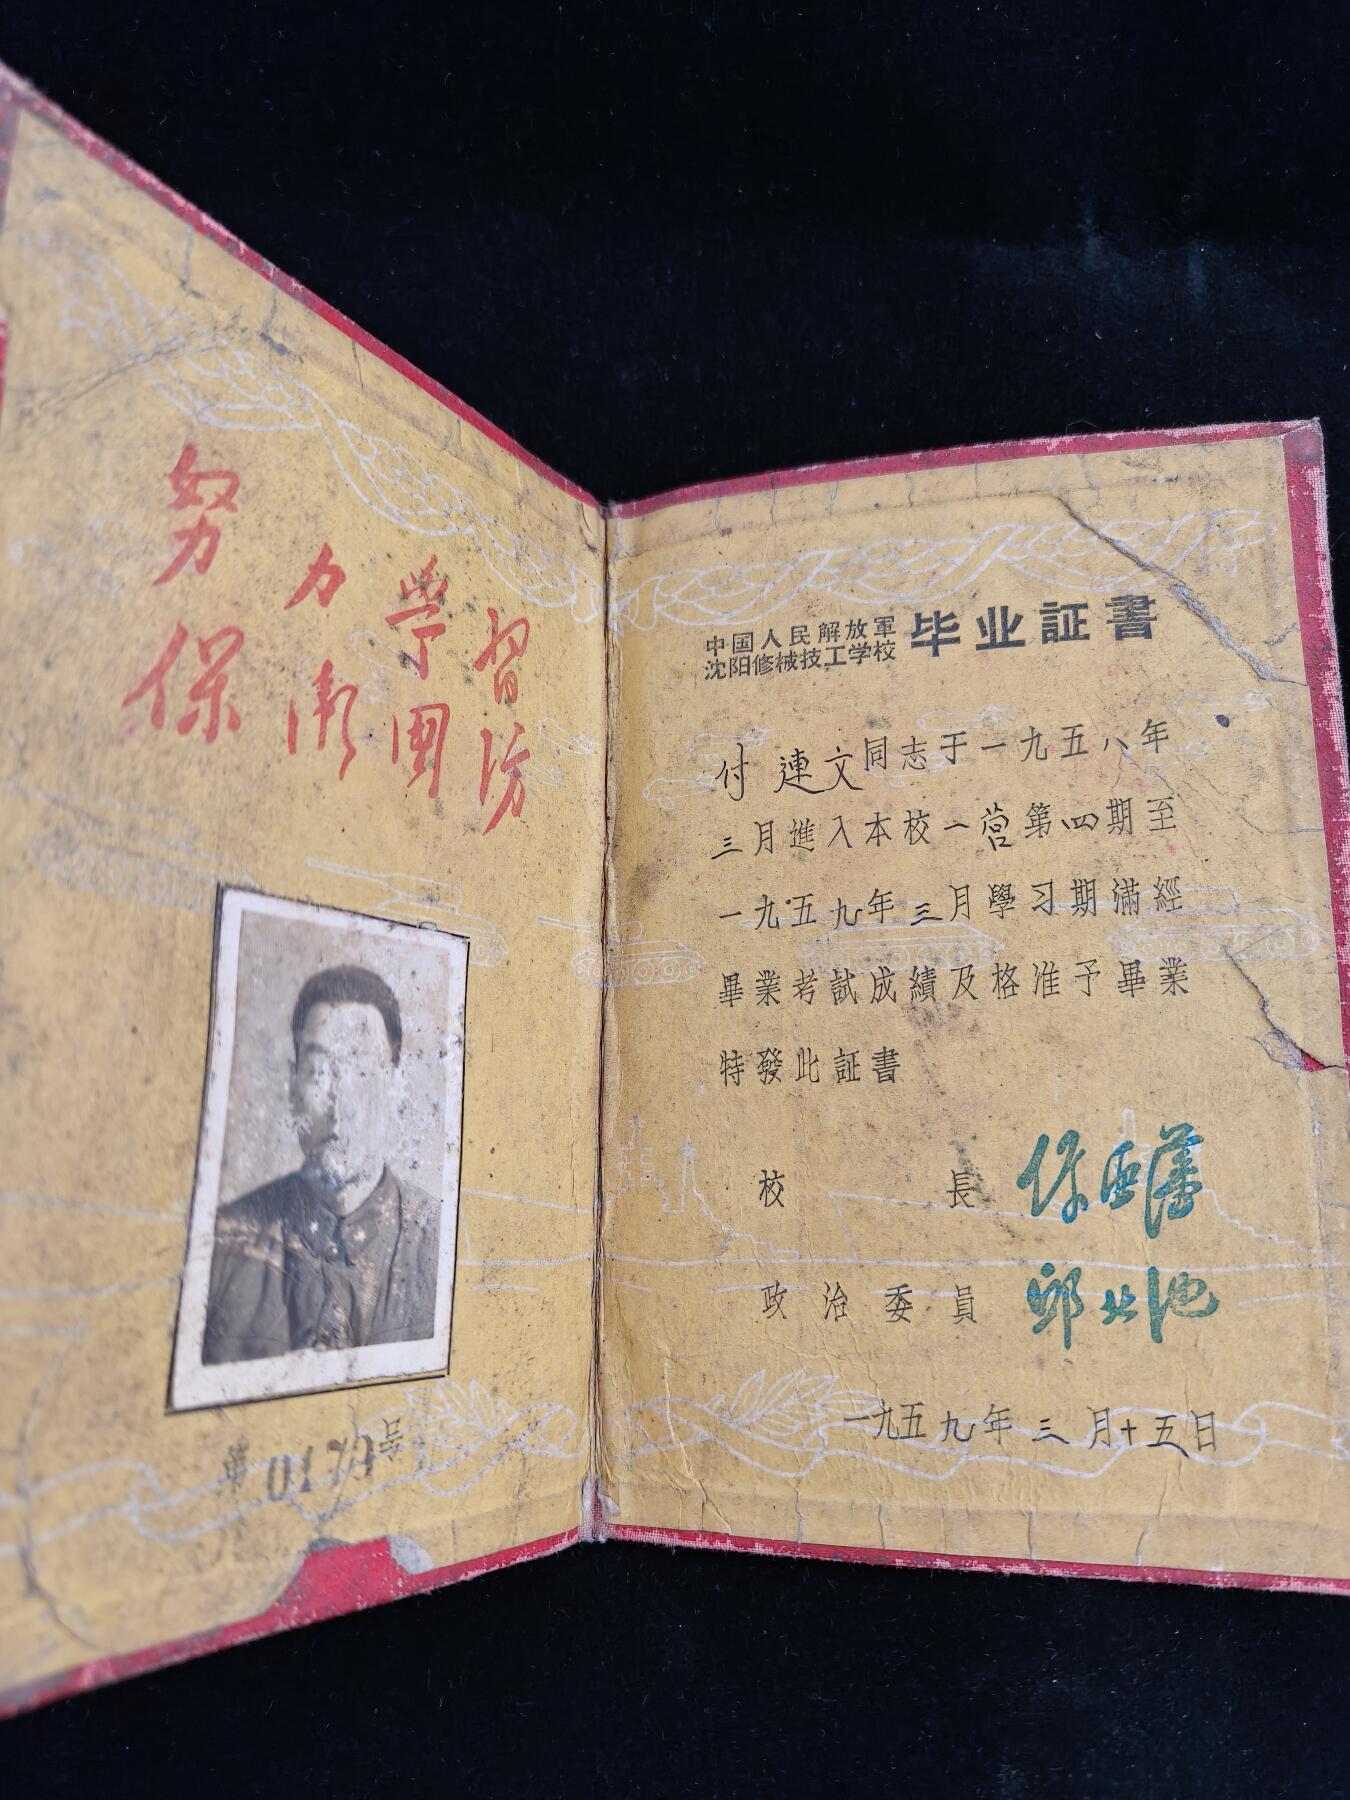 努力学習
保衛國防
中国人民解放軍
沈阳修械技工学校
毕业証書
付連文同志于一九五八年
三月進入本校一营第四期至
一九五九年三月學习期滿經
畢業考試成績及格准予畢業
特發此証書
校長
政治委員 邱北池
一九五九年三月十五日